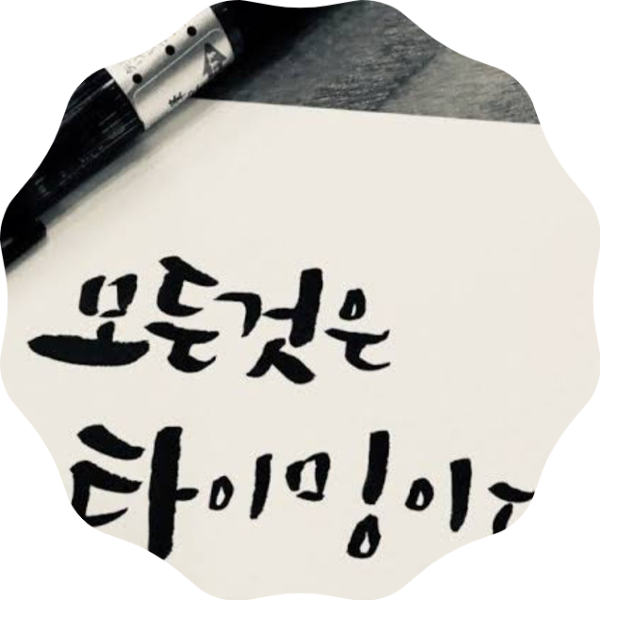 모든것은
타이밍이